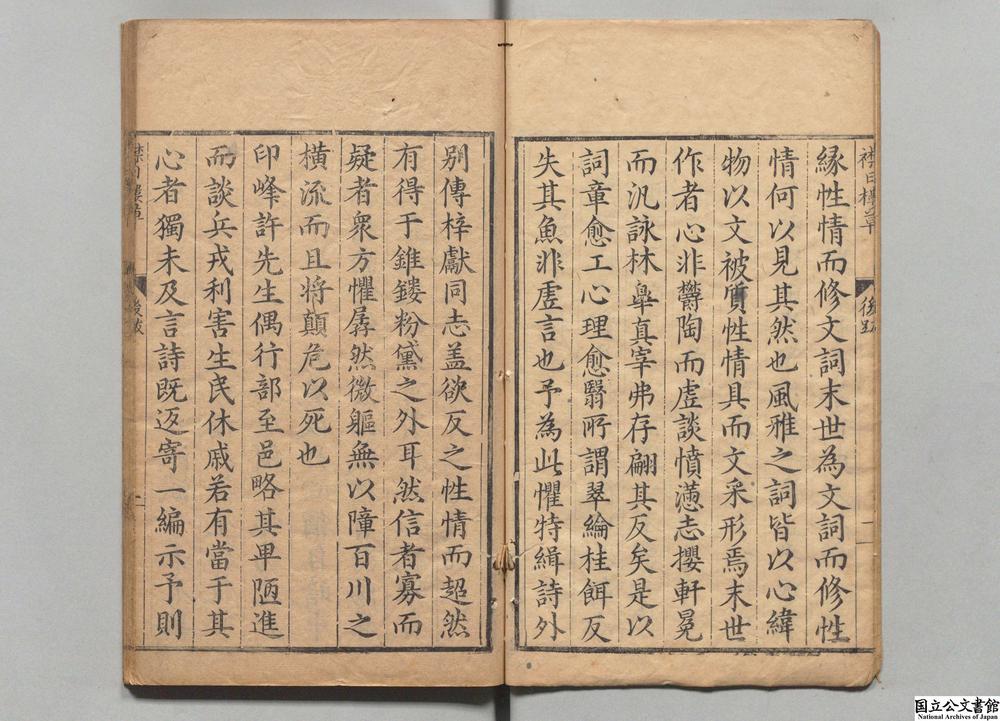 後跋
緣性情而修文詞末世為文詞而修性
情何以見其然也風雅之詞皆以心緯
物以文被質性情具而文采形焉末世
作者心非欝陶而虗談憤懣志攖軒冕
而汎詠林臯真宰弗存翩其反矣是以
詞章愈工心理愈翳所謂翠綸桂餌反
失其魚非虗言也予為此懼特緝詩外
別傳梓獻同志盖欲反之性情而超然
有得于錐鏤粉黛之外耳然信者寡而
疑者衆方懼孱然微軀無以障百川之
橫流而且将顛危以死也
印峰許先生偶行部至邑略其卑陋進
而談兵戎利害生民休戚若有當于其
心者獨未及言詩既返寄一編示予則
後跋
国立公文書館
National Archives of Japan